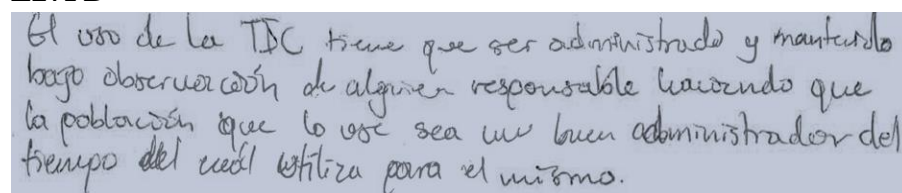 El uso de la TIC tiene que ser administrado y mantenido
bajo observación de alguien responsable haciendo que
la población que lo use sea un buen administrador del
tiempo del cuál utiliza para el mismo.